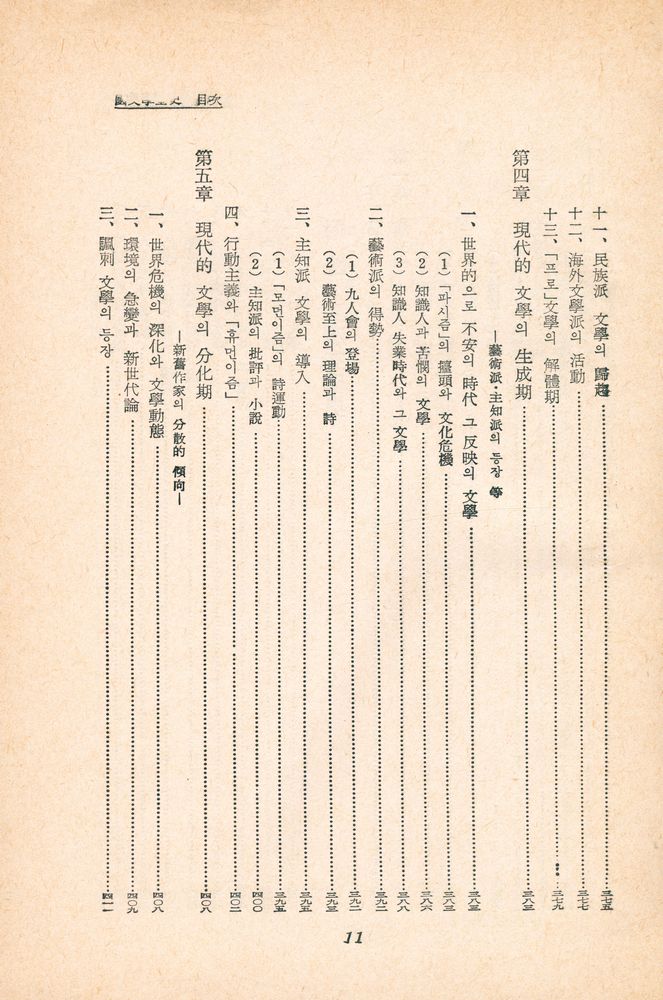 國文學全史 目次
十一、民族派 文學의 歸趨……三七五
十二、海外文學派의 活動……三七七
十三、「프로」文學의 解體期……三七九
第四章 現代的 文學의 生成期……三八三
—藝術派·主知派의 등장 等
一、世界的으로 不安의 時代 그 反映의 文學……三八三
(1)「파시즘」의 擡頭와 文化危機……三八三
(2) 知識人과 苦憫의 文學……三八六
(3) 知識人 失業時代와 그 文學……三八八
二、藝術派의 得勢……三九二
(1) 九人會의 登場……三九二
(2) 藝術至上의 理論과 詩……三九三
三、主知派 文學의 導入……三九五
(1)「모던이즘」의 詩運動……三九五
(2) 主知派의 批評과 小說……四〇〇
四、行動主義와「휴먼이즘」……四〇二
第五章 現代的 文學의 分化期……四〇八
—新舊作家의 分散的 傾向—
一、世界危機의 深化와 文學動態……四〇八
二、環境의 急變과 新世代論……四〇九
三、諷刺 文學의 등장……四一一
11